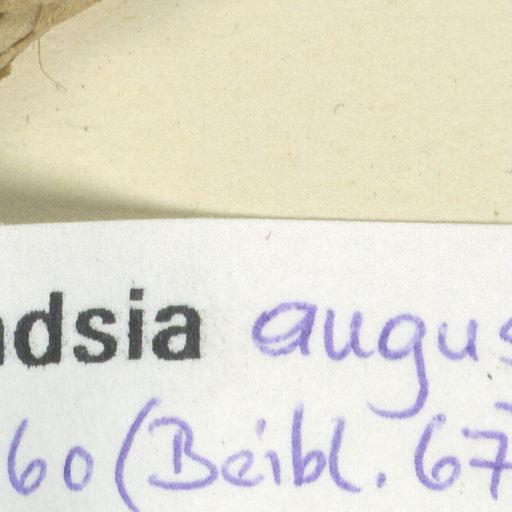 ndsia augus
60 (Beibl. 67